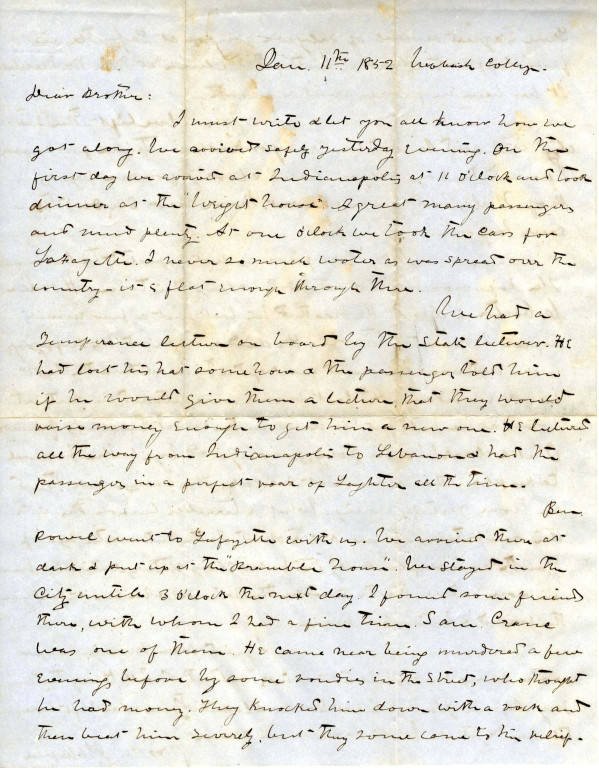 Jan. 11th 1852 Wabash College.
Dear Brother:
I must write & let you all know how we
got along. We arrived safely yesterday evening. On the
first day we arrived at Indianapolis at 11 o'clock and took
dinner at the "Wright house" A great many passengers
and mud plenty. At one o'clock we took the cars for
LaFayette. I never so much water as was spread over the
country - it is flat enough through there.
We had a
Temperance lecture on board by the State lecturer. He
had lost his hat some how & the passengers told him
if he would give them a lecture that they would
raise money enough to get him a new one. He lectured
all the way from Indianapolis to Lebanon & had the
passengers in a perfect roar of laughter all the time.
Ben
Powel went to Lafayette with us. We arrived there at
dark & put up at the "Bramble House". We stayed in the
City until 3 o'clock the next day. I found some friends
there, with whom I had a fine time. Sam Crane
was one of them. He came near being murdered a few
evenings before by some rowdies in the Street, who thought
he had money. They knocked him down with a rock and
then beat him severely, but they some came to his relief.